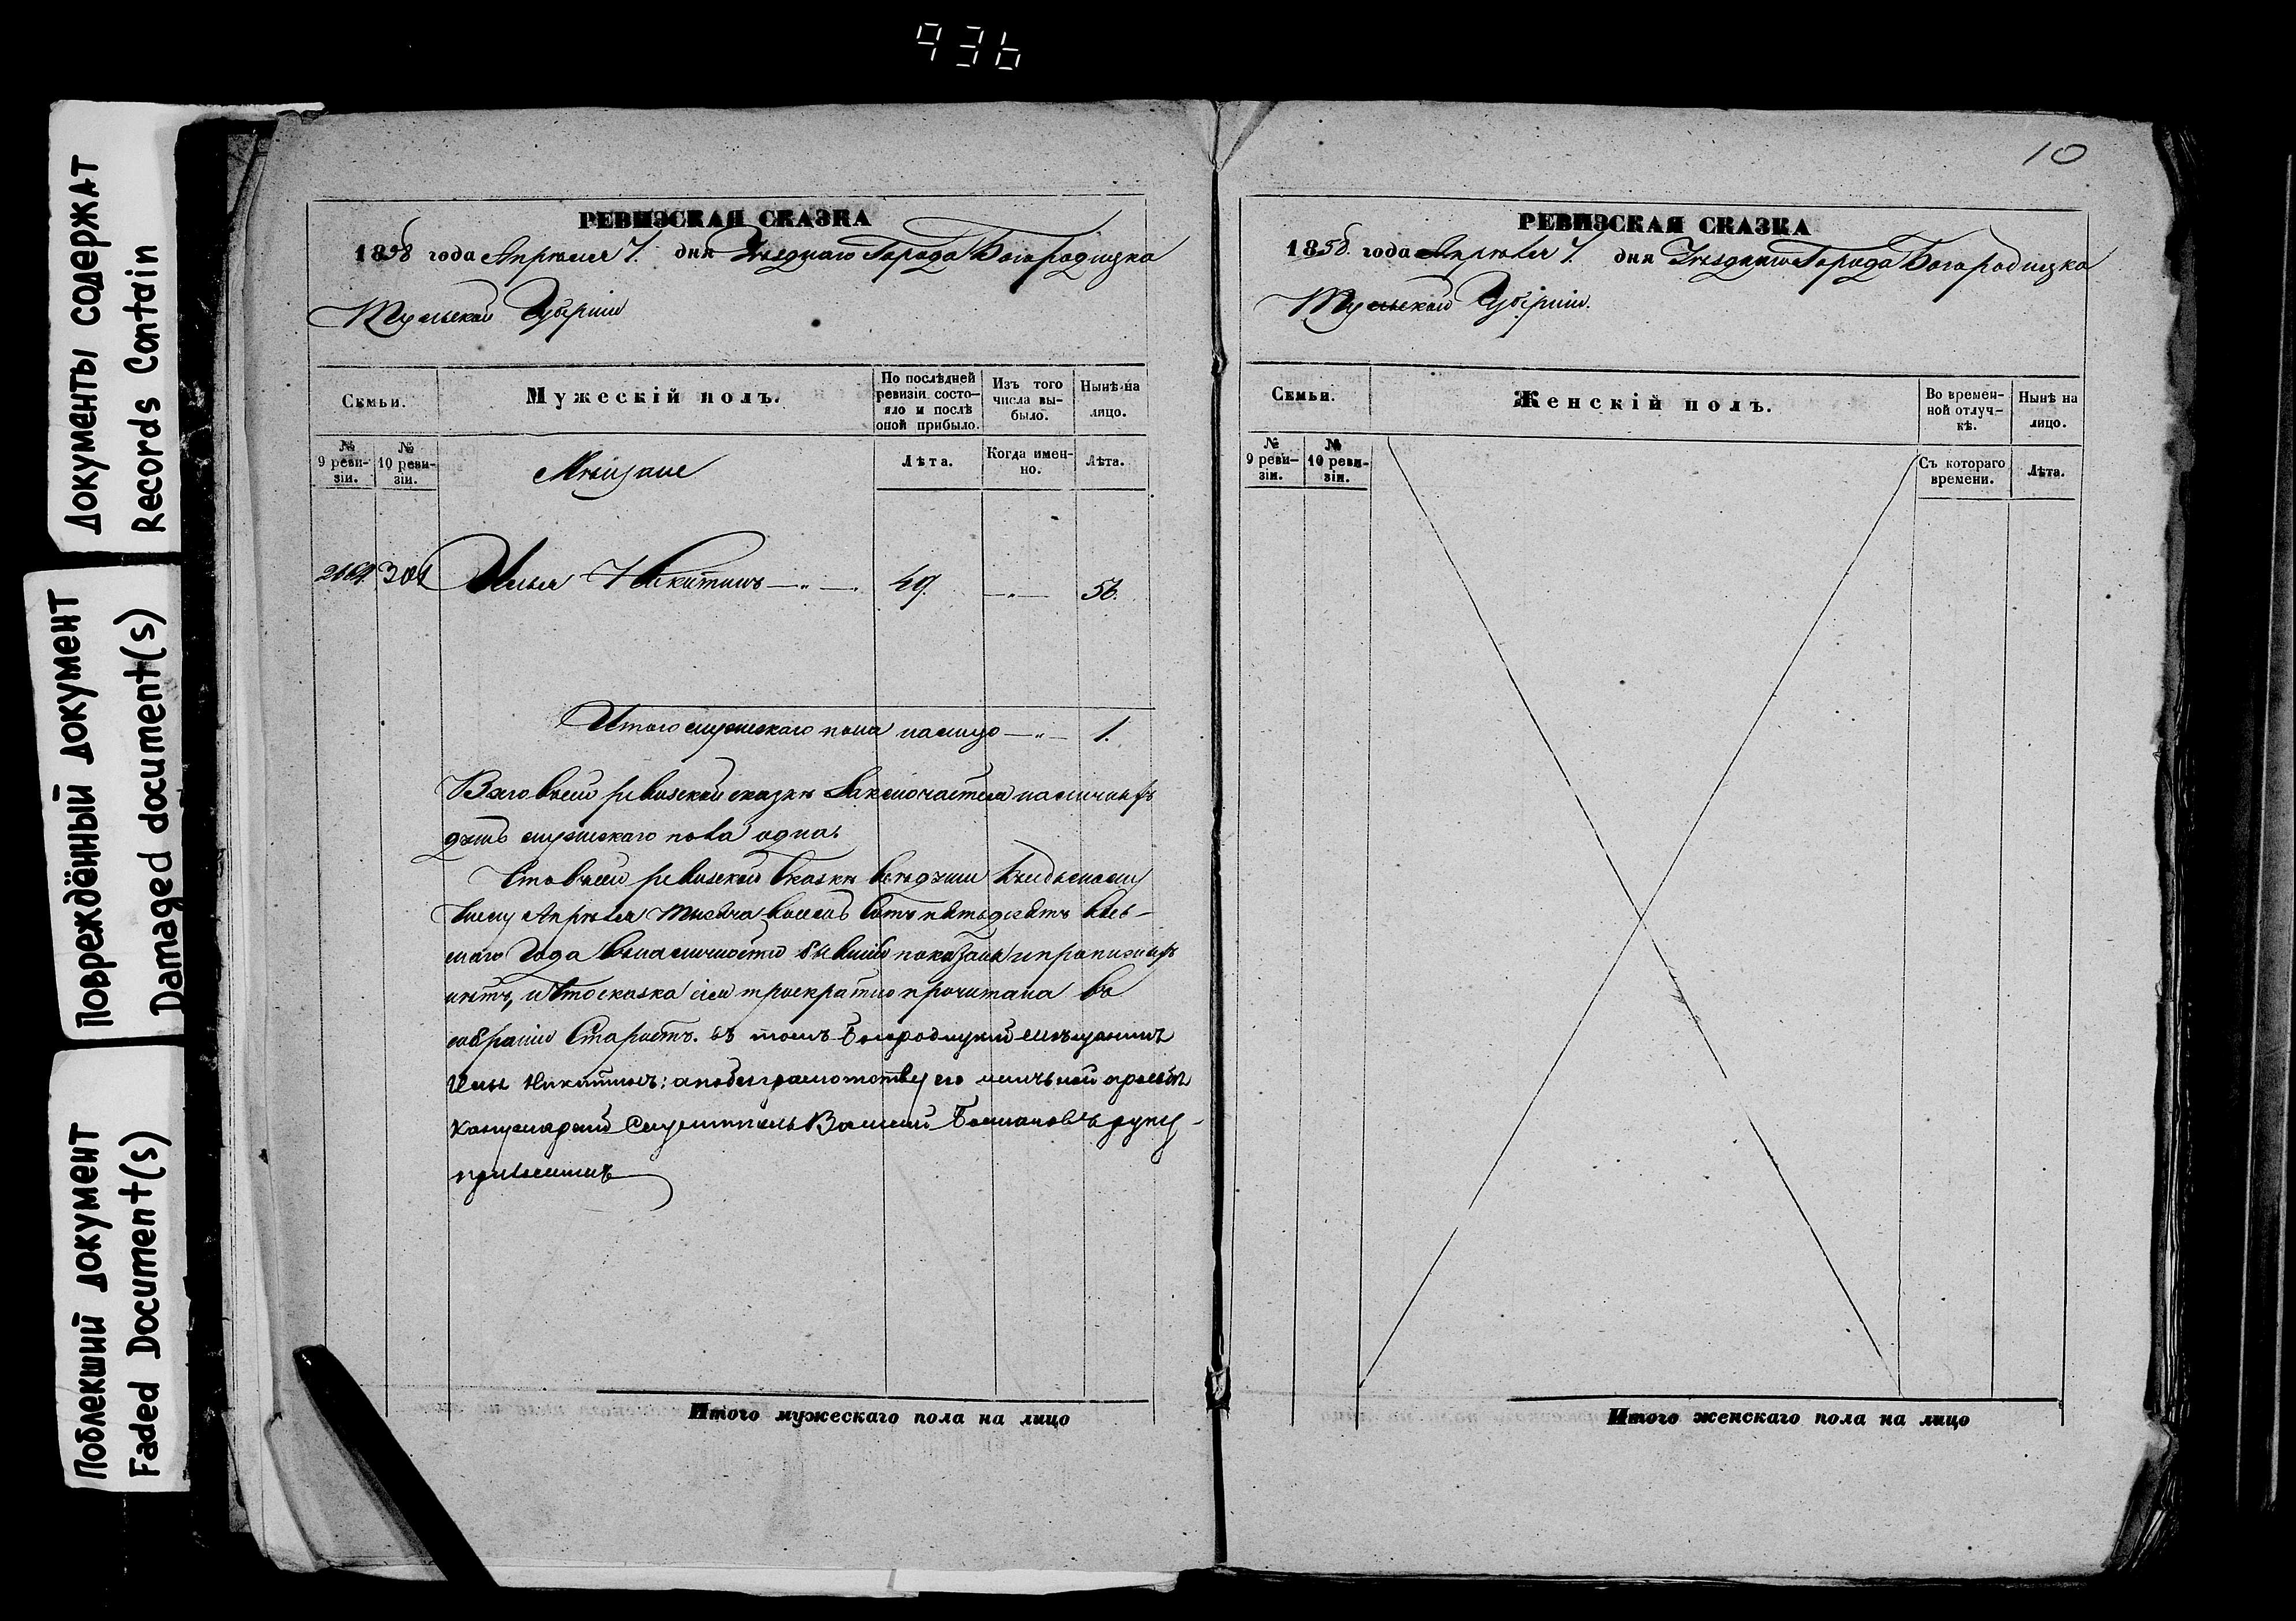 936
Документы содержат
Records Contain
Повреждённый документ
Damaged document(s)
Поблекший документ
Faded Document(s)
РЕВИЗСКАЯ СКАЗКА
1858 года Апрѣля 7. дня Уѣзднаго Города Богородицка
Тульской Губерніи
Семьи.
Мужескій полъ.
По послѣдней ревизіи состояло и послѣ оной прибыло.
Изъ того числа выбыло.
Нынѣ на лицо.
№ 9 ревизіи.
№ 10 ревизіи.
Мѣщане
Лѣта.
Когда именно.
Лѣта.
301 Илья Никитинъ —„— 49. —„— 56.
Итого мужескаго пола налицо —„— 1.
Всего въ сей ревизской сказкѣ заключается наличныхъ
душъ мужескаго пола одна.
Что въ сей ревизской сказкѣ всѣ души къ седьмому
числу Апрѣля тысяча восемь сотъ пятьдесятъ вось-
маго года въ наличности бывшія показаны и прописныхъ
нѣтъ, и что сказка сія троекратно прочитана въ
собраніи Старостъ. въ томъ Богородицкій мѣщанинъ
Илья Никитинъ: а по безграмотству его личьной прозьбѣ
Служитель руку
приложилъ
10
РЕВИЗСКАЯ СКАЗКА
1858. года Апрѣля 7. дня Уѣзднаго Города Богородицка
Тульской Губерніи.
Семьи.
Женскій полъ.
Во временной отлучкѣ.
Нынѣ на лицо.
№ 9 ревизіи.
№ 10 ревизіи.
Съ котораго времени.
Лѣта.
Итого мужескаго пола на лицо
Итого женскаго пола на лицо